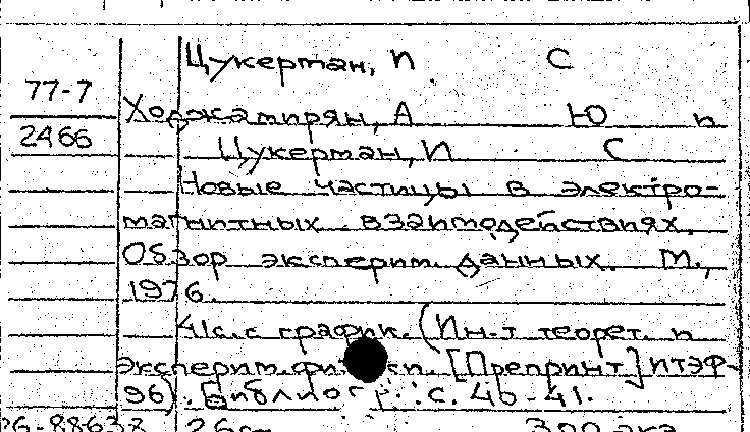 Цукерман, И С
77-7
Ходжамирян, А Ю и
2466
Цукерман, И С
Новые частицы в электро-
магнитных взаимодействиях.
Обзор эксперим. данных. М.,
1976.
41с. с график. (Ин-т теорет. и
эксперим. [Препринт] ИТЭФ-
96). Библиогр.: с. 40-41.
26-88638 300 экз